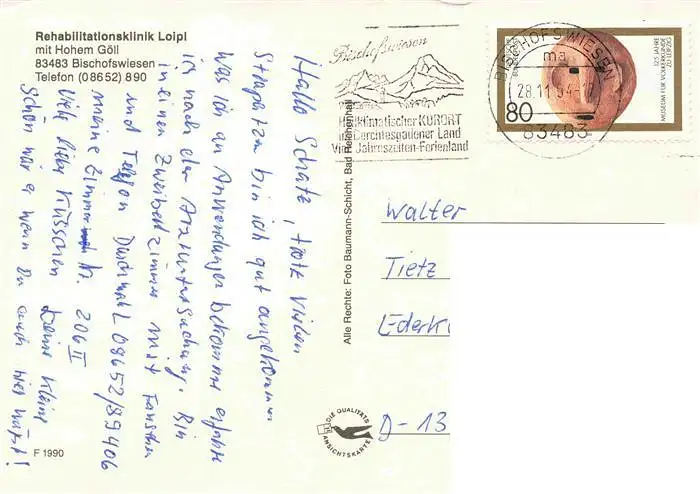 Rehabilitationsklinik Loipl
mit Hohem Göll
83483 Bischofswiesen
Telefon (08652) 890
Hallo Schatz, trotz vielen
Strapatzen bin ich gut angekommen
Was ich an Anwendungen bekomme erfahre
ich nach der Arztuntersuchung. Bin
in einen Zweibettzimmer mit Fernsehn
und Telefon Durchwahl 08652/89406
meine Zimmer Nr. 206 II
Viele liebe Küsschen Deine Kleine
Schön wär es wenn Du auch hier wärst!
F 1990
Alle Rechte: Foto Baumann-Schicht, Bad Reichenhall
DIE QUALITÄTS
ANSICHTSKARTE
Bischofswiesen
Heilklimatischer KURORT
im Berchtesgadener Land
Vier Jahreszeiten-Ferienland
BISCHOFSWIESEN
ma
28.11.94-17
83483
80
DEUTSCHE
BUNDESPOST
125 JAHRE
MUSEUM FÜR VÖLKERKUNDE
ZU LEIPZIG
Walter
Tietz
Ederk
D-13